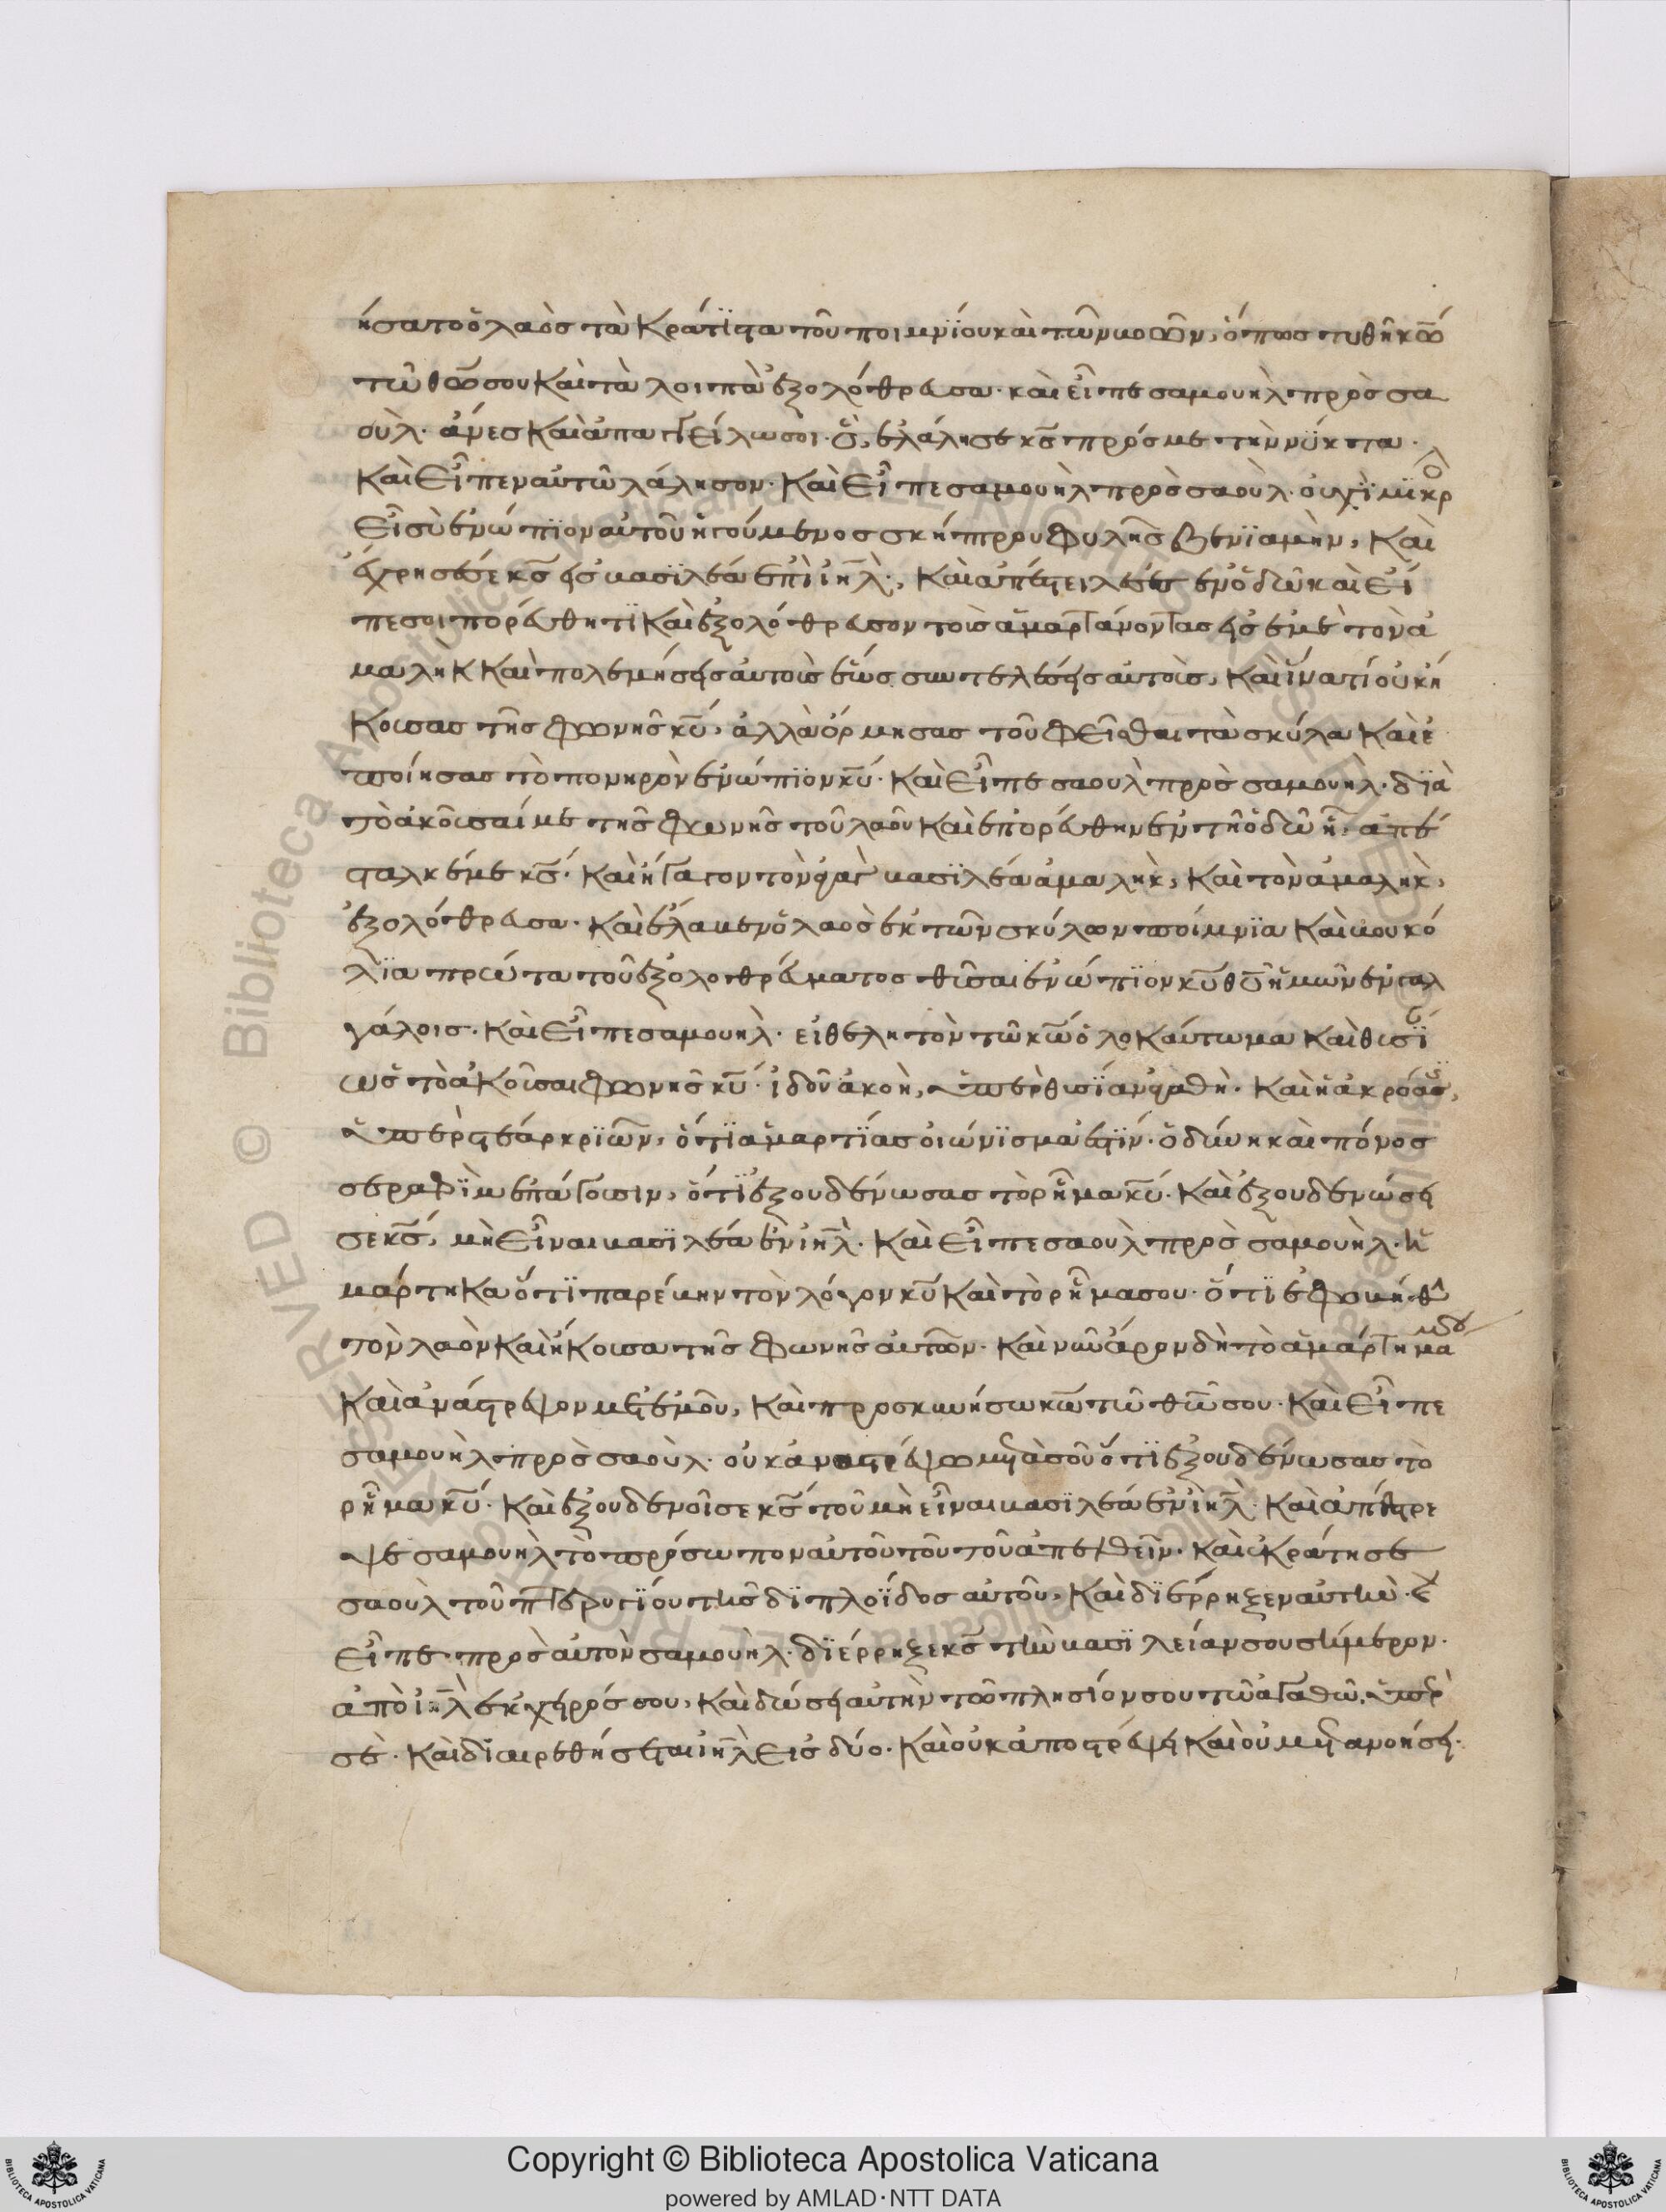 ήσατο ὁ λαὸς τὰ κράτϊστα τοῦ ποιμνΐου καὶ τῶν βοῶν, ὅπως τυθῆ κ̅ω̅
τῶ θ̅ω̅ σου καὶ τὰ λοιπὰ ἐξολόθρευσα· καὶ εἶπε σαμουὴλ πρὸς σα
οὺλ· ἄνες καὶ ἀπαγγείλω σοι· ὃ, ἐλάλησε κ̅ς̅ πρός με τὴν νΰκτα·
καὶ εἶπεν αὐτῶ λάλησον· καὶ εἶπε σαμουὴλ πρὸς σαοὺλ· οὐχὶ μϊκρὸ
εἶ σὺ ἐνώπϊον αὐτοῦ ἡγούμενος σκήπρου φυλῆς βενϊαμὴν, καὶ
ἔχρησέ σε κ̅ς̅ εἰς βασϊλέα ἐπὶ ι̅η̅λ̅, καὶ ἀπέστειλέ σε ἐν ὁδῶ καὶ εἶ
πέ σοι πορεύθητϊ καὶ ἐξολόθρευσον τοὺς ἁμαρτάνοντας εἰς ἐμὲ τὸν ἀ
μαλὴκ καὶ πολεμήσεις αὐτοὺς ἕως συντελέσης αὐτοὺς, καὶ ἵνατί οὐκ ἤ
κουσας τῆς φωνῆς κ̅υ̅, ἀλλὰ ὅρμησας τοῦ θεῖσθαι τὰ σκύλα καὶ ἐ
ποίησας τὸ πονηρὸν ἐνώπϊον κ̅υ̅· καὶ εἶπε σαοὺλ πρὸς σαμουὴλ· δϊὰ
τὸ ἀκοῦσαί με τῆς φωνῆς τοῦ λαοῦ καὶ ἐπορεύθην ἐν τῆ ὁδῶ ἧ, ἀπέ
σταλκέ με κ̅ς̅· καὶ ἤγαγον τὸν ἀγὰγ βασϊλέα ἀμαλὴκ, καὶ τὸν ἀμαλὴκ,
ἐξολόθρευσα· καὶ ἔλαβεν ὁ λαὸς ἐκ τῶν σκύλων ποίμνϊα καὶ βουκό
λϊα πρώτα τοῦ ἐξολοθρεύματος θῦσαι ἐνώπϊον κ̅υ̅ θ̅υ̅ ἡμῶν ἐν γαλ
γάλοις· καὶ εἶπε σαμουὴλ· εἰ θελητὸν τῶ κ̅ω̅ ὁλοκαύτωμα καὶ θυσΐ
ὡς τὸ ἀκοῦσαι φωνῆς κ̅υ̅· ἰδοῦ ἀκοὴ, ὑπὲρ θυσΐαν ἀγαθὴ· καὶ ἡ ἀκρόασϊς,
ὑπὲρ στέαρ κρϊῶν, ὅτϊ ἁμαρτΐας οἰώνϊσμα ἐστϊν· ὀδύνη καὶ πόνος
σεραφϊμ ἐπάγουσιν, ὅτϊ ἐξουδένωσας τὸ ρῆμα κ̅υ̅· καὶ ἐξουδενώσει
σε κ̅ς̅, μὴ εἶναι βασϊλέα ἐν ι̅η̅λ̅· καὶ εἶπε σαοὺλ πρὸς σαμουὴλ· ἡ
μάρτηκα ὅτϊ παρέβην τὸν λόγον κ̅υ̅ καὶ τὸ ρῆμα σου· ὅτϊ ἐφοβήθην
τὸν λαὸν καὶ ἤκουσα τῆς φωνῆς αὐτῶν· καὶ νῦν ἆρον δὴ τὸ ἁμάρτημα μου
καὶ ἀνάστρεψον μετ' ἐμοῦ, καὶ προσκυνήσω κ̅ω̅ τῶ θ̅ω̅ σου· καὶ εἶπε
σαμουὴλ πρὸς σαοὺλ· οὐκ ἀναστρέψω μετὰ σοῦ ὅτϊ ἐξουδένωσας τὸ
ρῆμα κ̅υ̅· καὶ ἐξουδενοῖ σε κ̅ς̅ τοῦ μὴ εἶναι βασϊλέα ἐν ι̅η̅λ̅· καὶ ἀπέστρε
ψε σαμουὴλ τὸ πρόσωπον αὐτοῦ τοῦ τοῦ ἀπελθεῖν· καὶ ἐκράτησε
σαοὺλ τοῦ πτερυγίου τῆς δϊπλοΐδος αὐτοῦ, καὶ δϊέρρηξεν αὐτὸ· καὶ
εἶπε πρὸς αὐτὸν σαμουὴλ· δϊέρρηξε κ̅ς̅ τὴν βασϊλείαν σου σήμερον·
ἀπὸ ι̅η̅λ̅ ἐκ χειρός σου, καὶ δώσει αὐτὴν τῶ πλησίον σου τῶ ἀγαθῶ ὑπὲρ
σὲ· καὶ δϊαιρεθήσεται ι̅η̅λ̅ εἰς δύο· καὶ οὐκ ἀποστρέψει καὶ οὐ μετανοήσει·
Copyright © Biblioteca Apostolica Vaticana
powered by AMLAD·NTT DATA